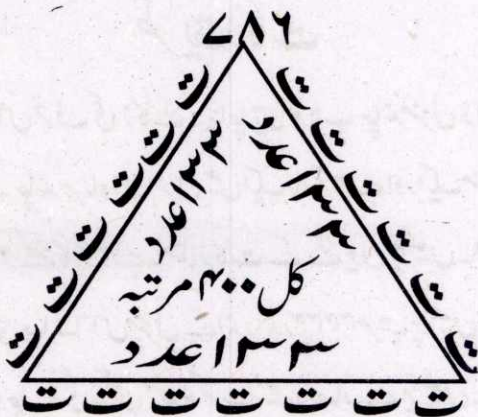 ۷۸۶
ت ت ت ت ت ت ت
ت ت ت ت ت ت
۱۳۳ عدد
۱۳۳ عدد
کل ۴۰۰ مرتبہ
۱۳۳ عدد
ت ت ت ت ت ت ت